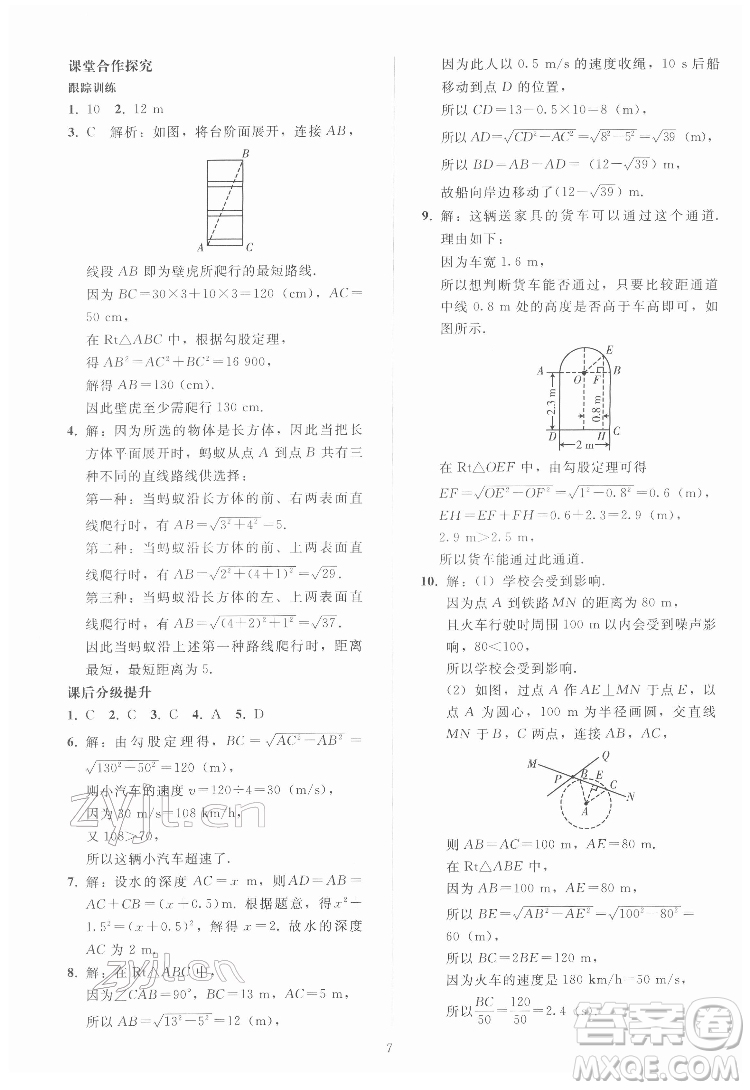 课堂合作探究
跟踪训练
1. 10  2. 12 m
3. C  解析：如图，将台阶面展开，连接 AB，
B
A
C
线段 AB 即为壁虎所爬行的最短路线.
因为 BC=30×3+10×3=120(cm)，AC=
50 cm，
在 Rt△ABC 中，根据勾股定理，
得 AB²=AC²+BC²=16 900，
解得 AB=130(cm).
因此壁虎至少需爬行 130 cm.
4. 解：因为所选的物体是长方体，因此当把长
方体平面展开时，蚂蚁从点 A 到点 B 共有三
种不同的直线路线供选择：
第一种：当蚂蚁沿长方体的前、右两表面直
线爬行时，有 AB=√(3²+4²)=5.
第二种：当蚂蚁沿长方体的前、上两表面直
线爬行时，有 AB=√(2²+(4+1)²)=√29.
第三种：当蚂蚁沿长方体的左、上两表面直
线爬行时，有 AB=√((4+2)²+1²)=√37.
因此当蚂蚁沿上述第一种路线爬行时，距离
最短，最短距离为 5.
课后分级提升
1. C  2. C  3. C  4. A  5. D
6. 解：由勾股定理得，BC=√(AC²-AB²)=
√(130²-50²)=120(m)，
则小汽车的速度 v=120÷4=30(m/s).
因为 30 m/s=108 km/h，
又 108>70，
所以这辆小汽车超速了.
7. 解：设水的深度 AC=x m，则 AB=AD=
AC+CB=(x+0.5)m. 因此 x²+
1.5²=(x+0.5)²，解得 x=2. 故水的深度
AC 为 2 m.
8. 解：在 Rt△ABC 中，
因为∠CAB=90°，BC=13 m，AC=5 m，
所以 AB=√(13²-5²)=12(m).
因为此人以 0.5 m/s 的速度收绳，10 s 后船
移动到点 D 的位置，
所以 CD=13-0.5×10=8(m).
所以 AD=√(CD²-AC²)=√(8²-5²)=√39(m).
所以 BD=AB-AD=(12-√39)(m).
故船向岸边移动了(12-√39)(m).
9. 解：这辆送家具的货车可以通过这个通道.
理由如下：
因为车宽 1.6 m，
所以想判断货车能否通过，只要比较距通道
中线 0.8 m 处的高度是否高于车高即可，如
图所示.
E
A
O
F
B
2.3 m
0.8 m
D
H
C
2 m
在 Rt△OEF 中，由勾股定理可得
EF=√(OE²-OF²)=√(1-0.8²)=0.6(m)，
EH=EF+FH=0.6+2.3=2.9(m)，
2.9 m>2.5 m，
所以货车能通过此通道.
10. 解：(1) 学校会受到影响.
因为点 A 到铁路 MN 的距离为 80 m，
且火车行驶时周围 100 m 会受到噪声影
响，80<100，
所以学校会受到影响.
(2) 如图，过点 A 作 AE⊥MN 于点 E，以
点 A 为圆心，100 m 为半径画圆，交 MN
于 B，C 两点，
M
Q
P
B
E
C
A
N
则 AB=AC=100 m，
在 Rt△ABE 中，
因为 AB=100 m，AE=80 m，
所以 BE=√(AB²-AE²)=√(100²-80²)=
60(m)，
所以 BC=2BE=120(m).
因为火车的速度是 180 km/h=50 m/s，
所以 BC/50=120/50=2.4(s)，
7
zyjl.cn
zyjl.cn
答案圈
MXQE.COM